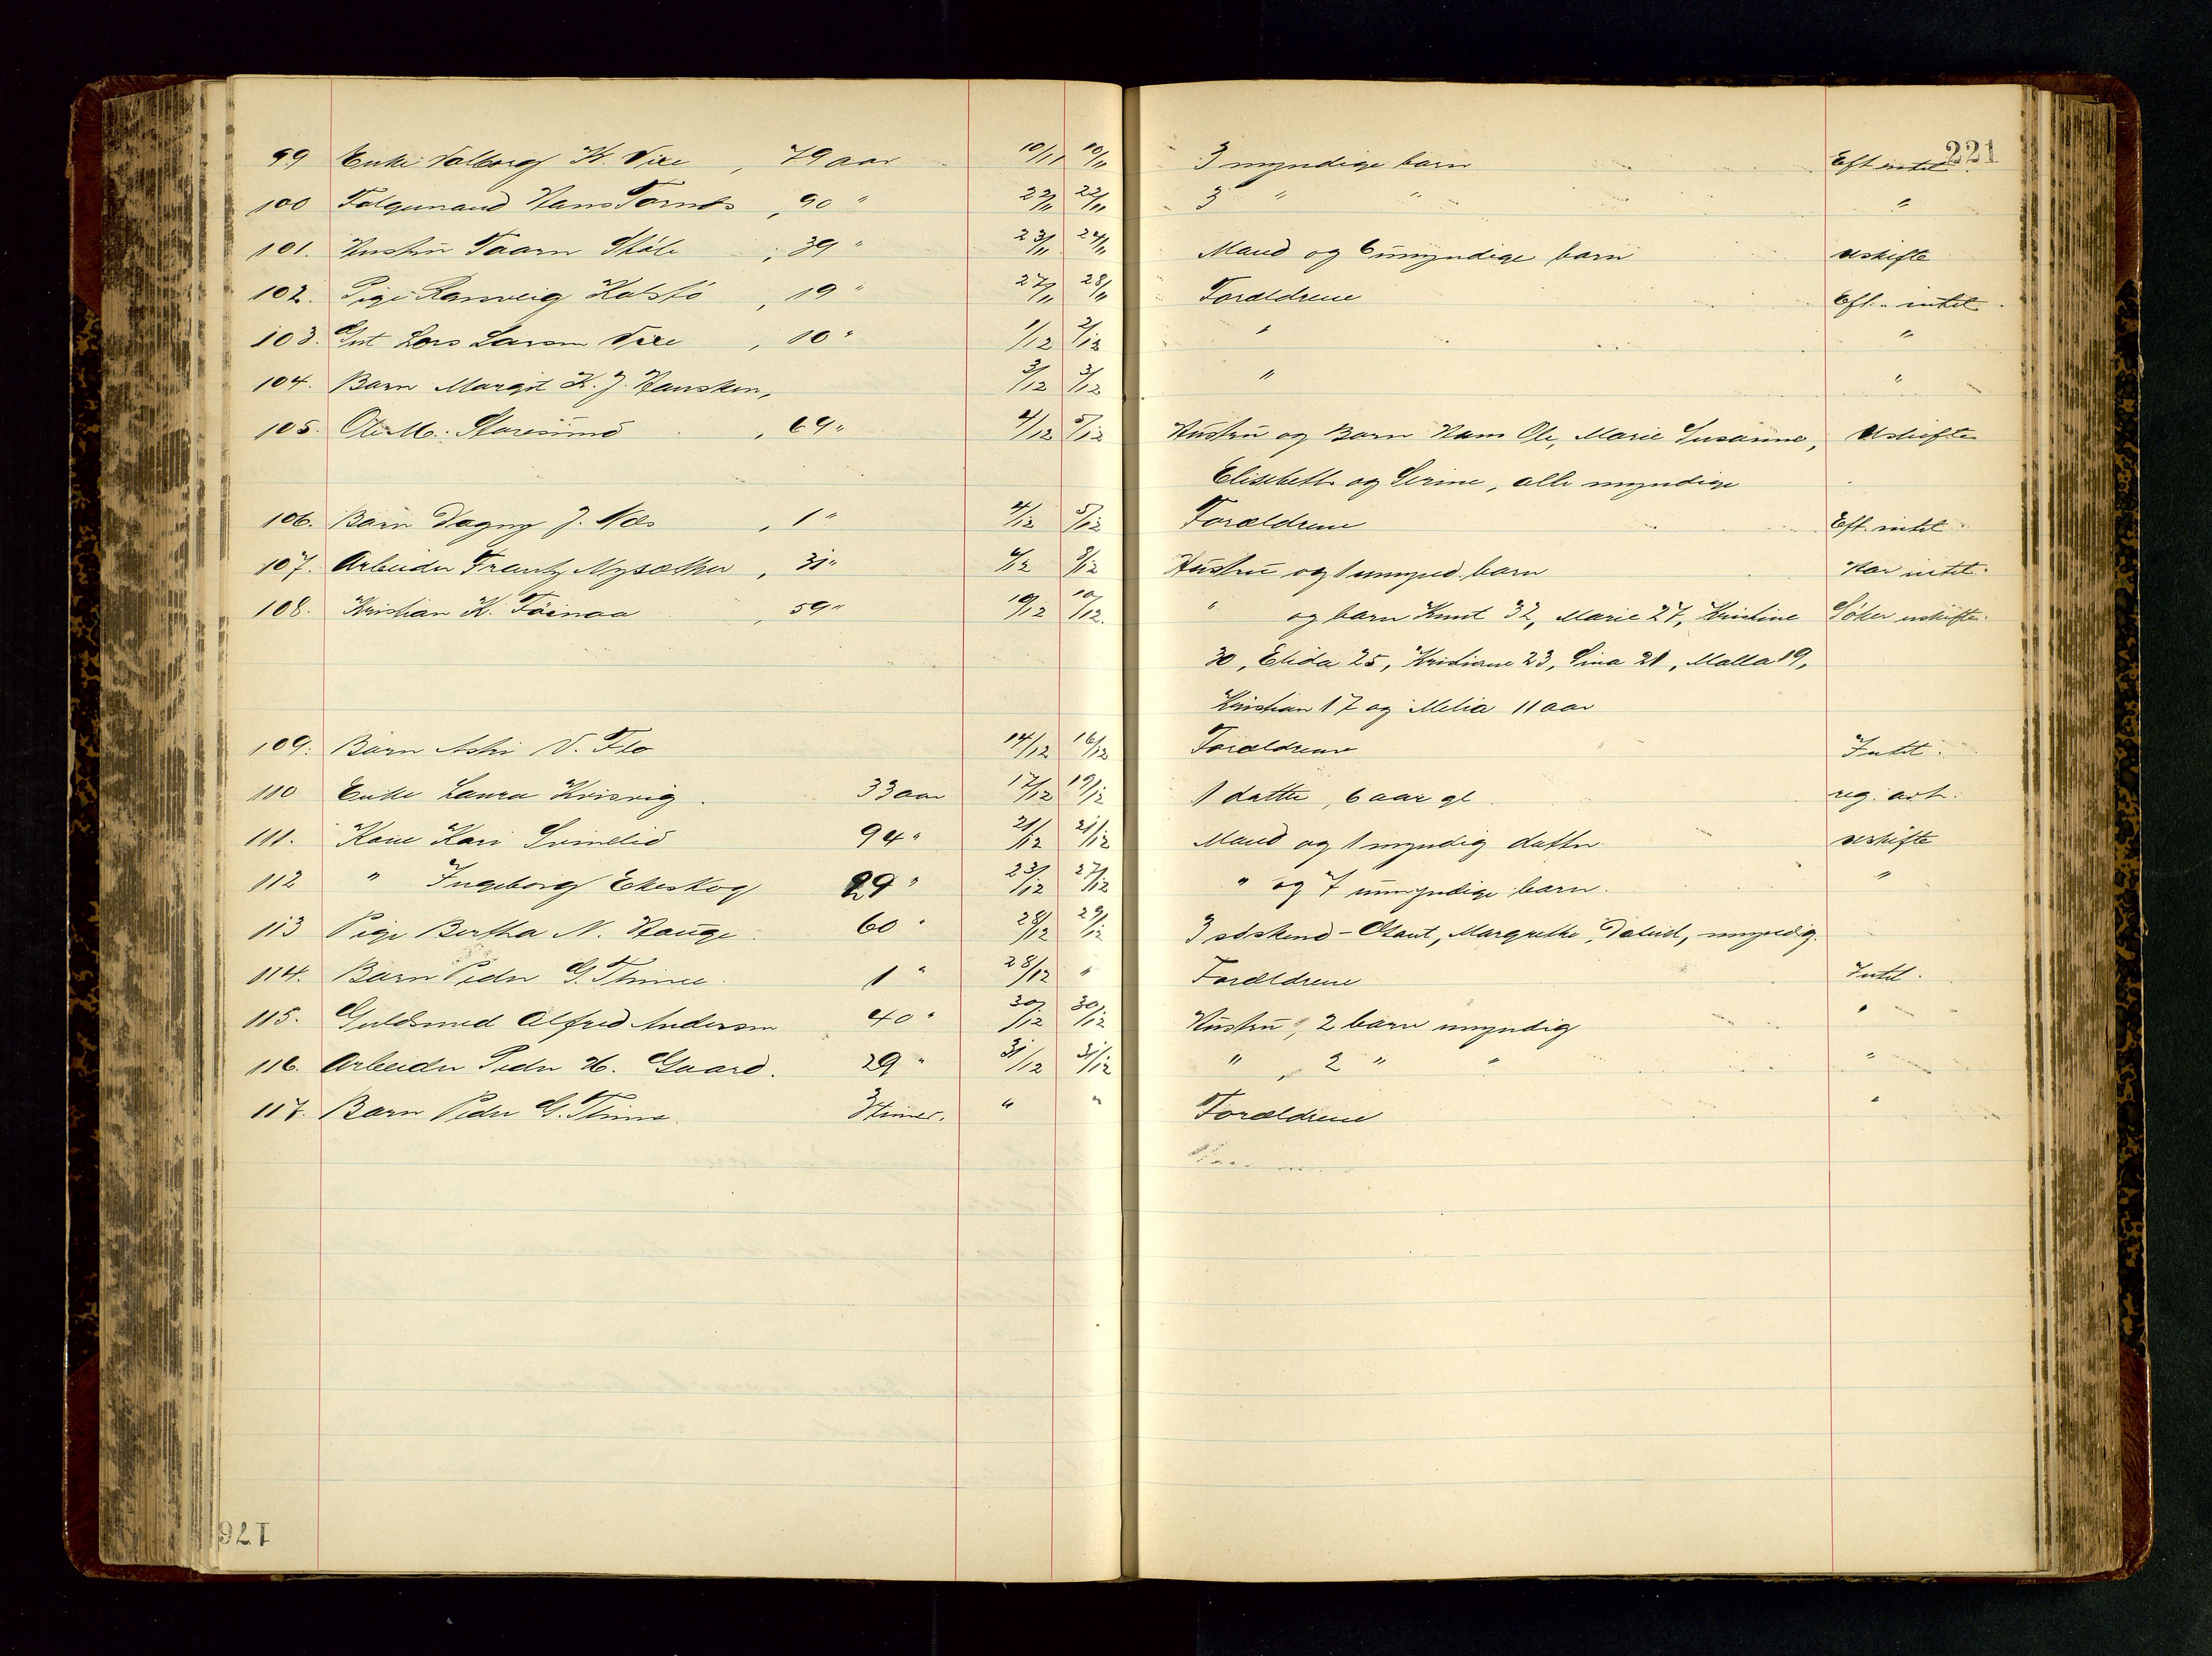 221
99 Enke Valborg K. Vixe, 79 aar 10/11 10/11 3 myndige barn Eft intet.
100 Følgemand Hans Tornes, 90 " 22/11 22/11 3 " " "
101. Hustru Taarn Skåle, 39 " 23/11 24/11 Mand og 6 umyndige barn uskifte
102. Pige Ranveig Kolstö, 19 " 27/11 28/11 Forældrene Eft. intet.
103. Gut Lars Larsen Vixe, 10 " 1/12 2/12 " "
104. Barn Margit K. J. Hansken, 3/12 3/12 " "
105. Ole M. Storesund, 69 " 4/12 5/12 Hustru og Barn Hans Ole, Marie Susanne, Uskifte
Elisebeth og Serine, alle myndige
106. Barn Dagny J. Næs, 1 " 4/12 5/12 Forældrene Eft. intet
107. Arbeider Frantz Mysæther, 31 " 6/12 8/12 Hustru og 1 umynd. barn Har intet.
108. Kristian K. Föinaa, 59 " 10/12 10/12. " og barn Knut 32, Marie 27, Kristine Söker uskifte.
30, Elida 25, Kristiane 23, Sina 21, Malla 19,
Kristian 17 og Melia 11 aar
109. Barn V. Flo 14/12 16/12 Forældrene Intet.
110 Enke Laura Krisvig. 33 aar 17/12 19/12 1 datter, 6 aar gl. reg. arb.
111. Kone Kari Svindlid 94 " 21/12 21/12 Mand og 1 myndig datter uskifte
112 " Ingeborg Ekeskog 29 " 23/12 27/12 " og 7 umyndige barn. "
113 Pige Bertha N. Hauge. 60 " 28/12 29/12 3 sóskend - Margrethe, myndig.
114. Barn Peder G. Thime. 1 " 28/12 " Forældrene Intet.
115. Guldsmed Alfred Andersen 40 " 30/12 30/12 Hustru, 2 barn umyndig "
116. Arbeider Peder H. Gaard. 29 " 31/12 31/12 " , 2 " " "
117. Barn Peder G. Thime. 3 timer. " " Forældrene "
176